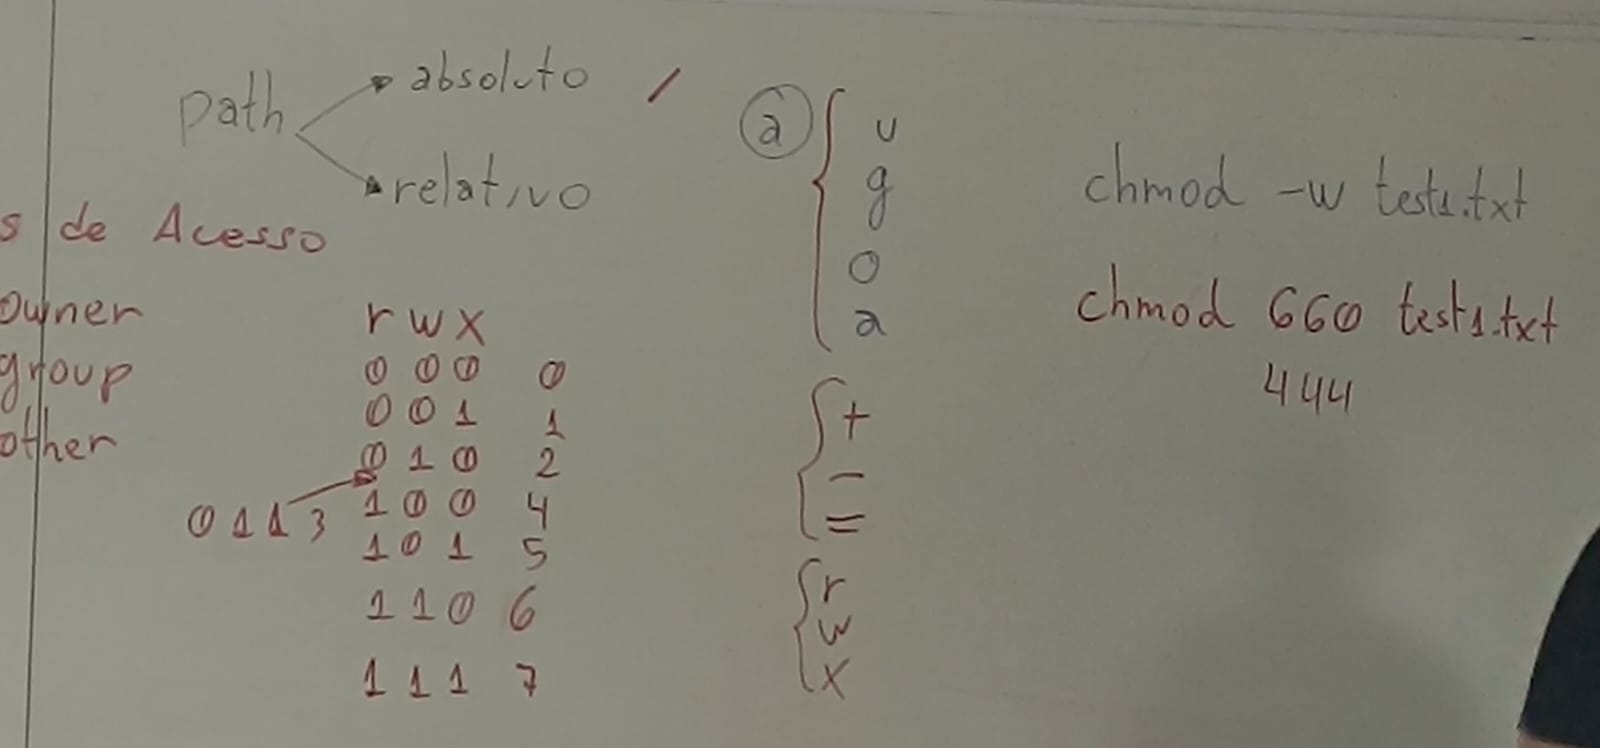 path absoluto /
relativo
s de Acesso
owner
group
other
r w x
0 0 0 0
0 0 1 1
0 1 0 2
0 1 1 3
1 0 0 4
1 0 1 5
1 1 0 6
1 1 1 7
a
u
g
o
a
+
-
=
r
w
x
chmod -w test1.txt
chmod 660 test1.txt
444